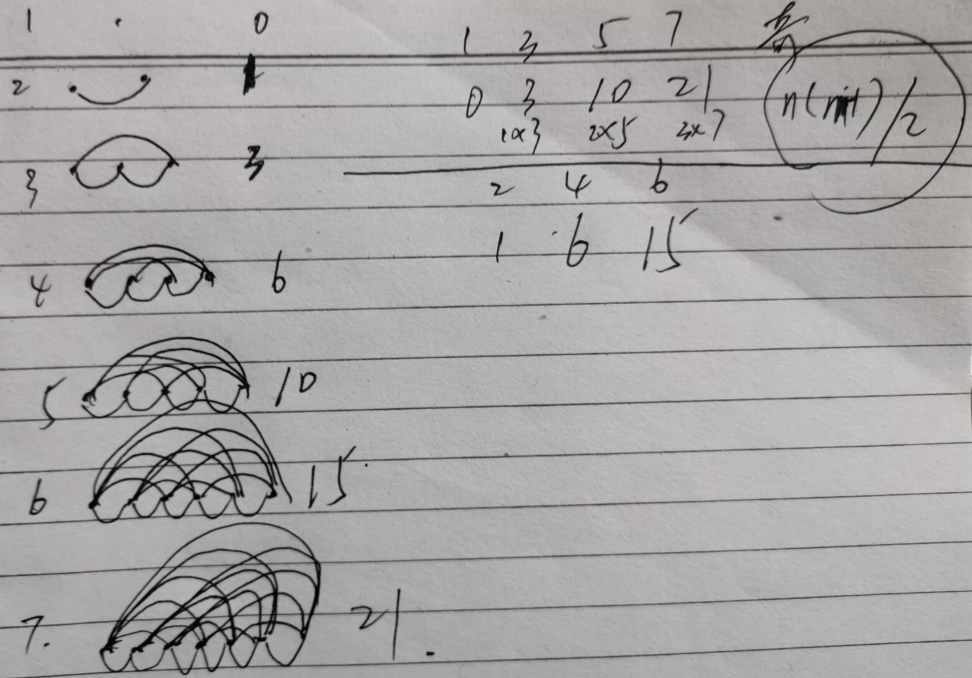 1 0
2
3 3
4 6
5 10
6 15
7. 21.
1 3 5 7 奇
0 3 10 21
1×3 2×5 3×7
2 4 6
1 6 15